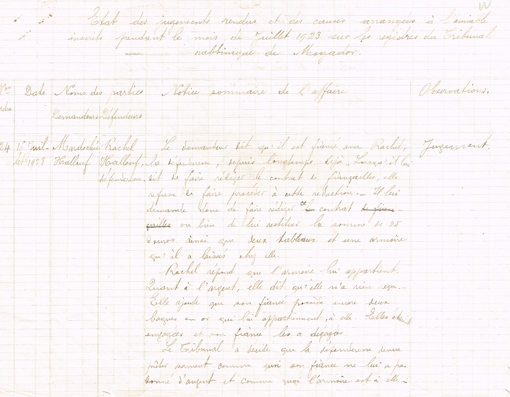 Etat des jugements rendus et des causes arrangées à l'amiable
inscrits pendant le mois de Juillet 1923 sur les registres du Tribunal
rabbinique de Mogador.
Date Noms des parties Notice sommaire de l'affaire Observations.
Demandeurs Défendeurs
24 Mardochée Rachel Le demandeur dit qu'il est fiancé avec Rachel, Jugement.
Khallouf Khallouf, la défenderesse, depuis longtemps déjà, Lorsqu'il lui
défenderesse dit de faire rédiger le contrat de fiançailles, elle
refuse de faire procéder à cette rédaction. - Il lui
demande donc de faire rédiger ce contrat
ou bien de lui restituer la somme de 25
douros ainsi que deux tableaux et une armoire
qu'il a laissés chez elle.
Rachel répond que l'armoire lui appartient.
Quant à l'argent, elle dit qu'elle n'a rien eu.
Elle ajoute que son fiancé possède encore deux
bagues en or qui lui appartiennent, à elle. Elles
engagées et son fiancé les a dégagées
Le Tribunal a décidé que la défenderesse devra
prêter serment comme quoi son fiancé ne lui a pas
donné d'argent et comme quoi l'armoire est à elle-